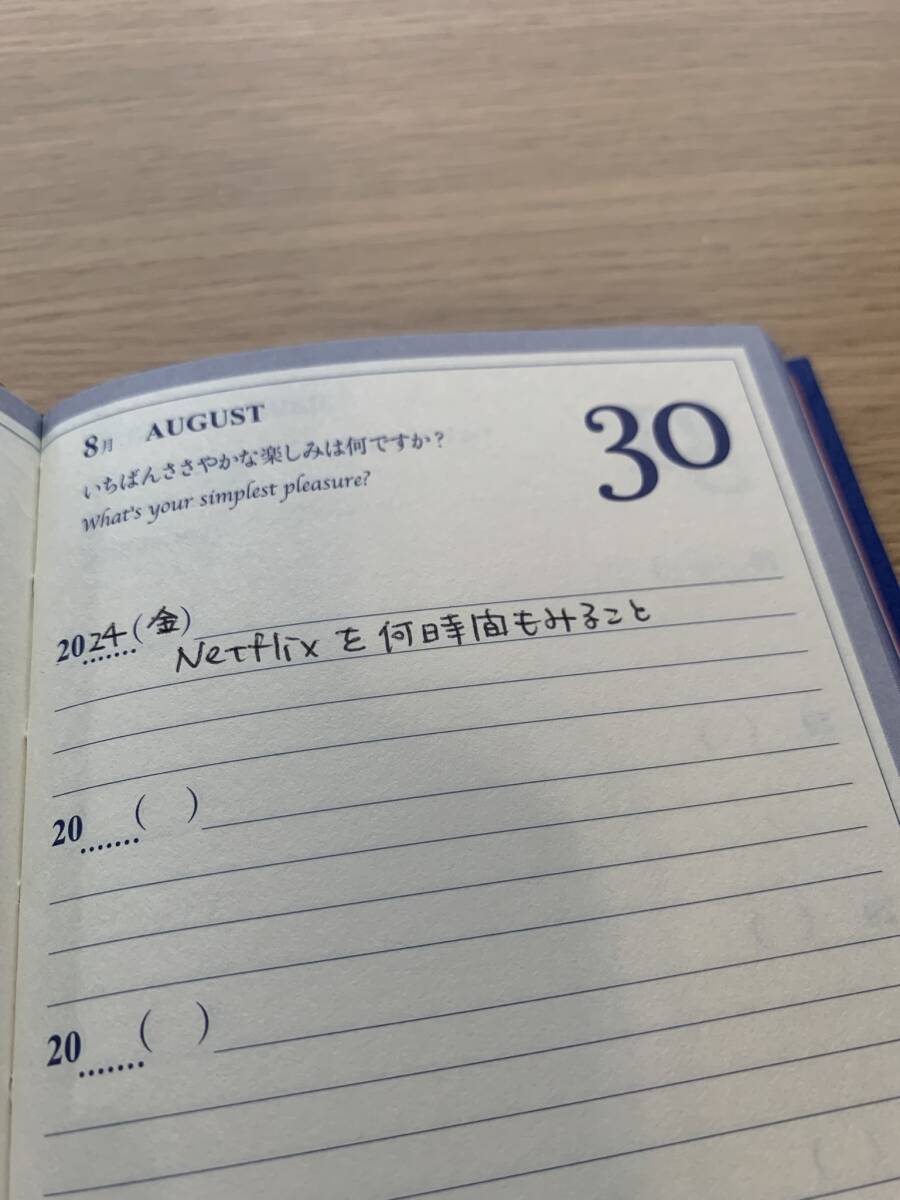 8月 AUGUST 30
いちばんささやかな楽しみは何ですか?
What's your simplest pleasure?
2024(金)
Netflixを何時間もみること
20 ( )
20 ( )